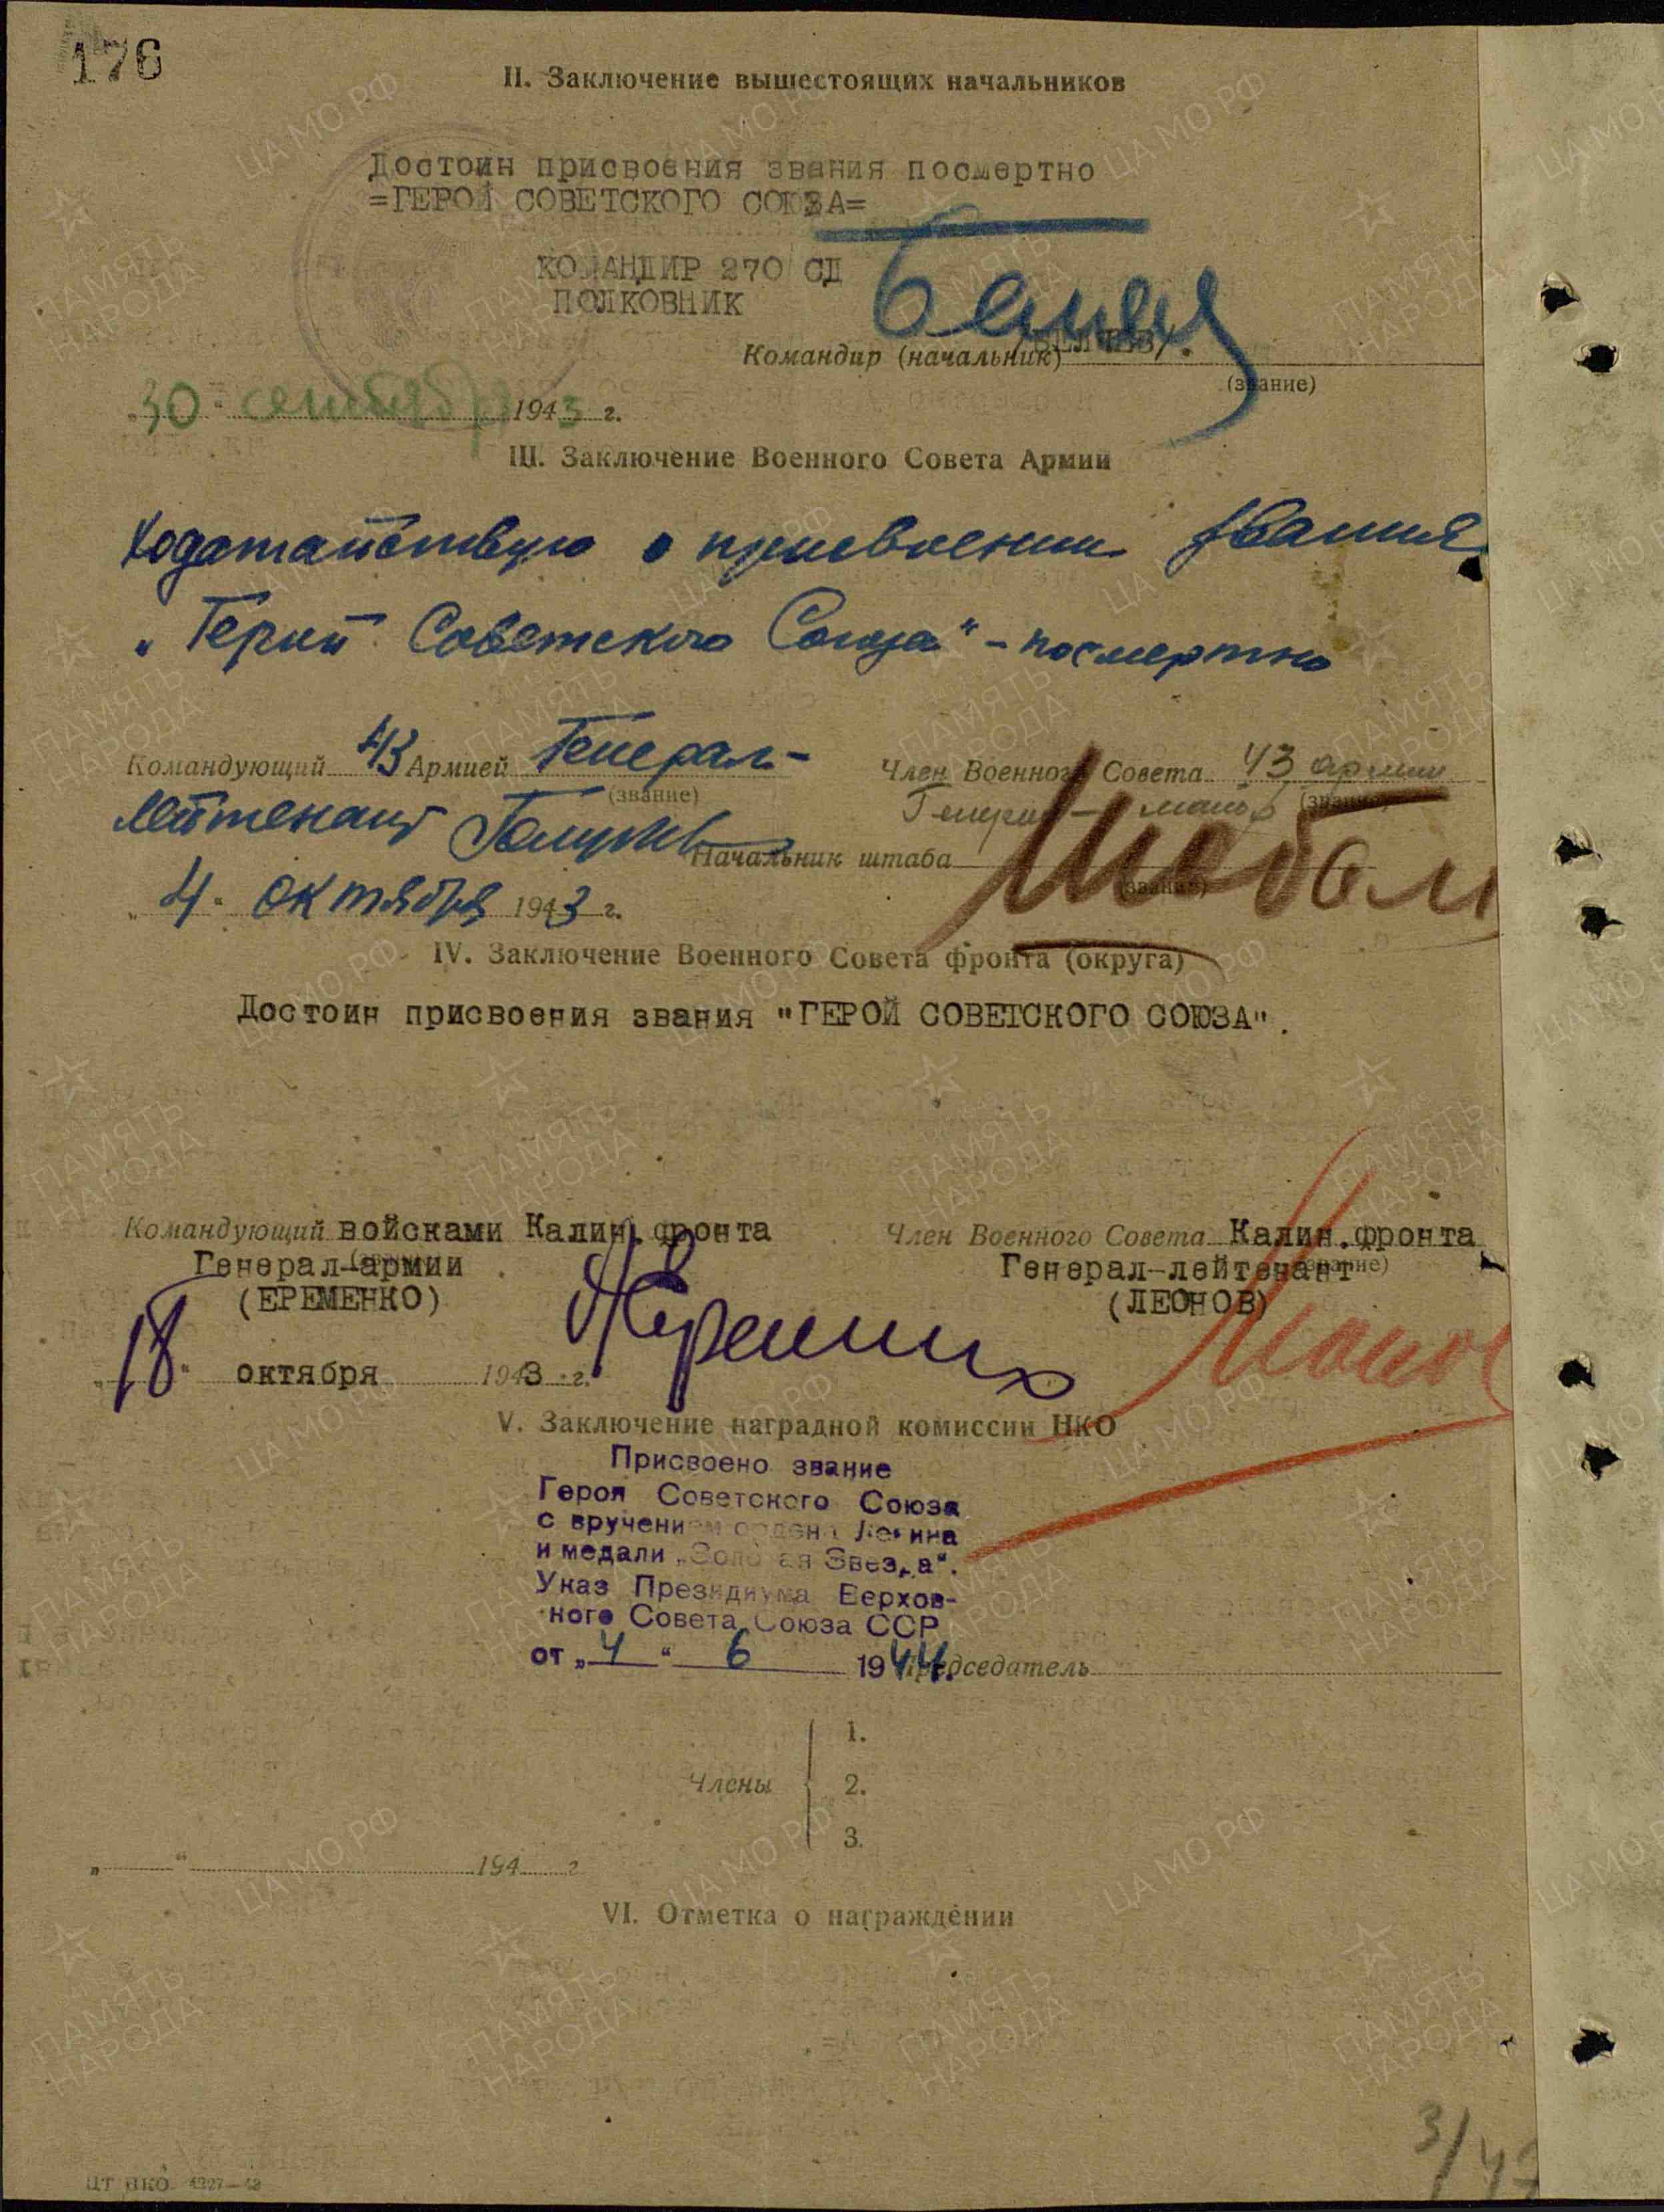 176
II. Заключение вышестоящих начальников
Достоин присвоения звания посмертно
=ГЕРОЙ СОВЕТСКОГО СОЮЗА=
КОМАНДИР 270 СД
ПОЛКОВНИК
Командир (начальник) /БЕЛЯЕВ/.
(звание)
„30“ сентября 1943 г.
III. Заключение Военного Совета Армии
Ходатайствую о присвоении звания
„Герой Советского Союза“ – посмертно
Командующий 43 Армией Генерал-
(звание)
лейтенант Голубев
Член Военного Совета 43 армии
(звание)
Генерал-майор
Начальник штаба
(звание)
„4“ октября 1943 г.
IV. Заключение Военного Совета фронта (округа)
Достоин присвоения звания "ГЕРОЙ СОВЕТСКОГО СОЮЗА".
Командующий войсками Калин. фронта
Генерал-армии
(ЕРЕМЕНКО)
Член Военного Совета Калин. фронта
(звание)
Генерал-лейтенант
(ЛЕОНОВ)
„18“ октября 1943 г.
V. Заключение наградной комиссии НКО
Присвоено звание
Героя Советского Союза
с вручением ордена Ленина
и медали „Золотая Звезда“.
Указ Президиума Верхов-
ного Совета Союза ССР
от „4“ 6 1944.
Председатель
Члены
1.
2.
3.
„ “ 194 г
VI. Отметка о награждении
3/47
ЦТ НКО
ЦА МО РФ
ПАМЯТЬ НАРОДА